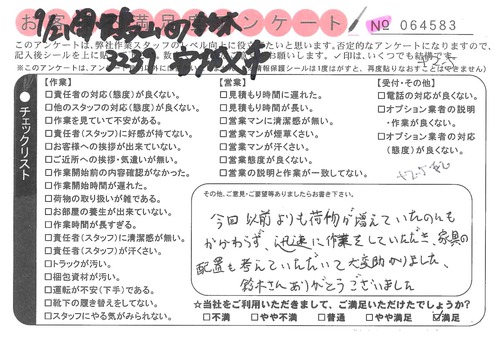 お客様満足度アンケート
№ 064583
このアンケートは、弊社作業スタッフのレベル向上に役立てたいと思います。否定的なアンケートになりますので、
【作業】
□責任者の対応(態度)が良くない。
□他のスタッフの対応(態度)が良くない。
□作業を見ていて不安がある。
□責任者(スタッフ)に好感が持てない。
□お客様への挨拶が出来ていない。
□ご近所への挨拶・気遣いが無い。
□作業開始前の内容確認がなかった。
□作業開始時間が遅れた。
□荷物の取り扱いが雑である。
□お部屋の養生が出来ていない。
□作業時間が長すぎる。
□責任者(スタッフ)に清潔感が無い。
□責任者(スタッフ)が汗くさい。
□トラックが汚い。
□梱包資材が汚い。
□運転が不安(下手)である。
□靴下の履き替えをしてない。
□スタッフにやる気がみられない。
【営業】
□見積もり時間に遅れた。
□見積もり時間が長い。
□営業マンに清潔感が無い。
□営業マンが煙草くさい。
□営業マンが汗くさい。
□営業態度が良くない。
□営業の説明と作業が一致してない。
【受付・その他】
□電話の対応が良くない。
□オプション業者の説明
・作業が良くない。
□オプション業者の対応
(態度)が良くない。
チェックリスト
その他、ご意見・ご要望等ありましたらお書き下さい。
今回以前よりも荷物が増えていたのにも
かかわらず、迅速に作業をしていただき、家具の
配置も考えていただいて大変助かりました、
鈴木さんありがとうございました
☆当社をご利用いただきまして、ご満足いただけたでしょうか?
□不満 □やや不満 □普通 □やや満足 ☑満足